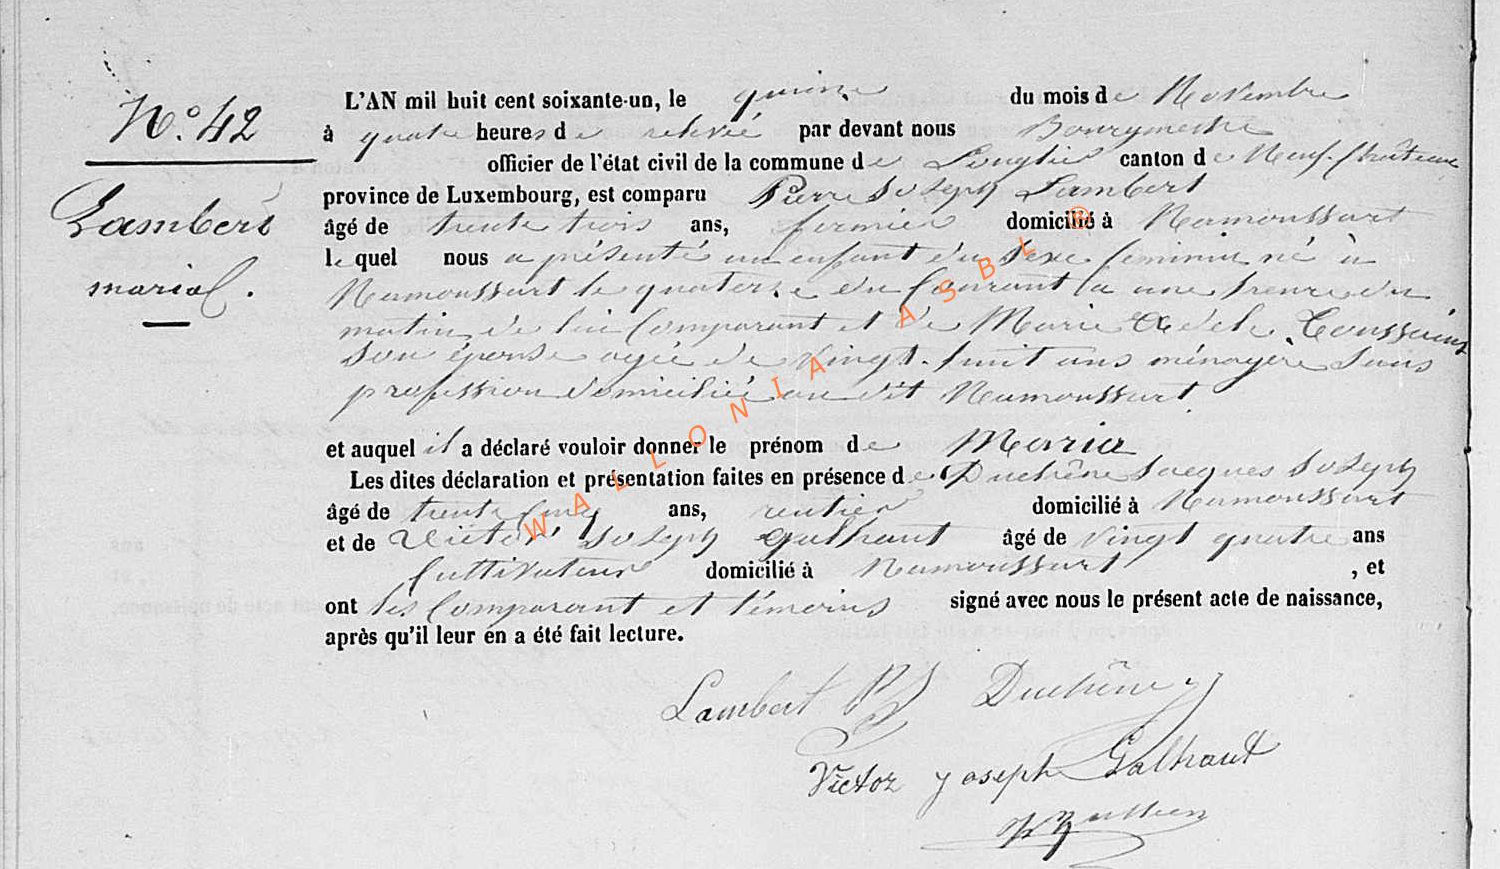 N.° 42
Lambert
maria
L'AN mil huit cent soixante-un, le quinze du mois de Novembre
à quatre heures de relevé par devant nous Bourgmestre
officier de l'état civil de la commune de Longlier canton de Neuf-Château
province de Luxembourg, est comparu Pierre Joseph Lambert
âgé de trente trois ans, fermier domicilié à Namoussart
le quel nous a présenté un enfant du sexe feminin né à
Namoussart le quatorze du Courrant a une heure du
matin de lui Comparant et de Marie Adele Toussaint
son épouse agée de vingt-huit ans ménagère sans
profession domiciliée au dit Namoussart
et auquel il a déclaré vouloir donner le prénom de Maria
Les dites déclaration et présentation faites en présence de Duchêne Jacques Joseph
âgé de trente Cinq ans, rentier domicilié à Namoussart
et de Victor Joseph Galhaut âgé de vingt quatre ans
Cultivateur domicilié à Namoussart , et
ont les Comparant et témoins signé avec nous le présent acte de naissance,
après qu'il leur en a été fait lecture.
Lambert PJ Duchêne J
Victor Joseph Galhaut
WALLONIA ASBL ®